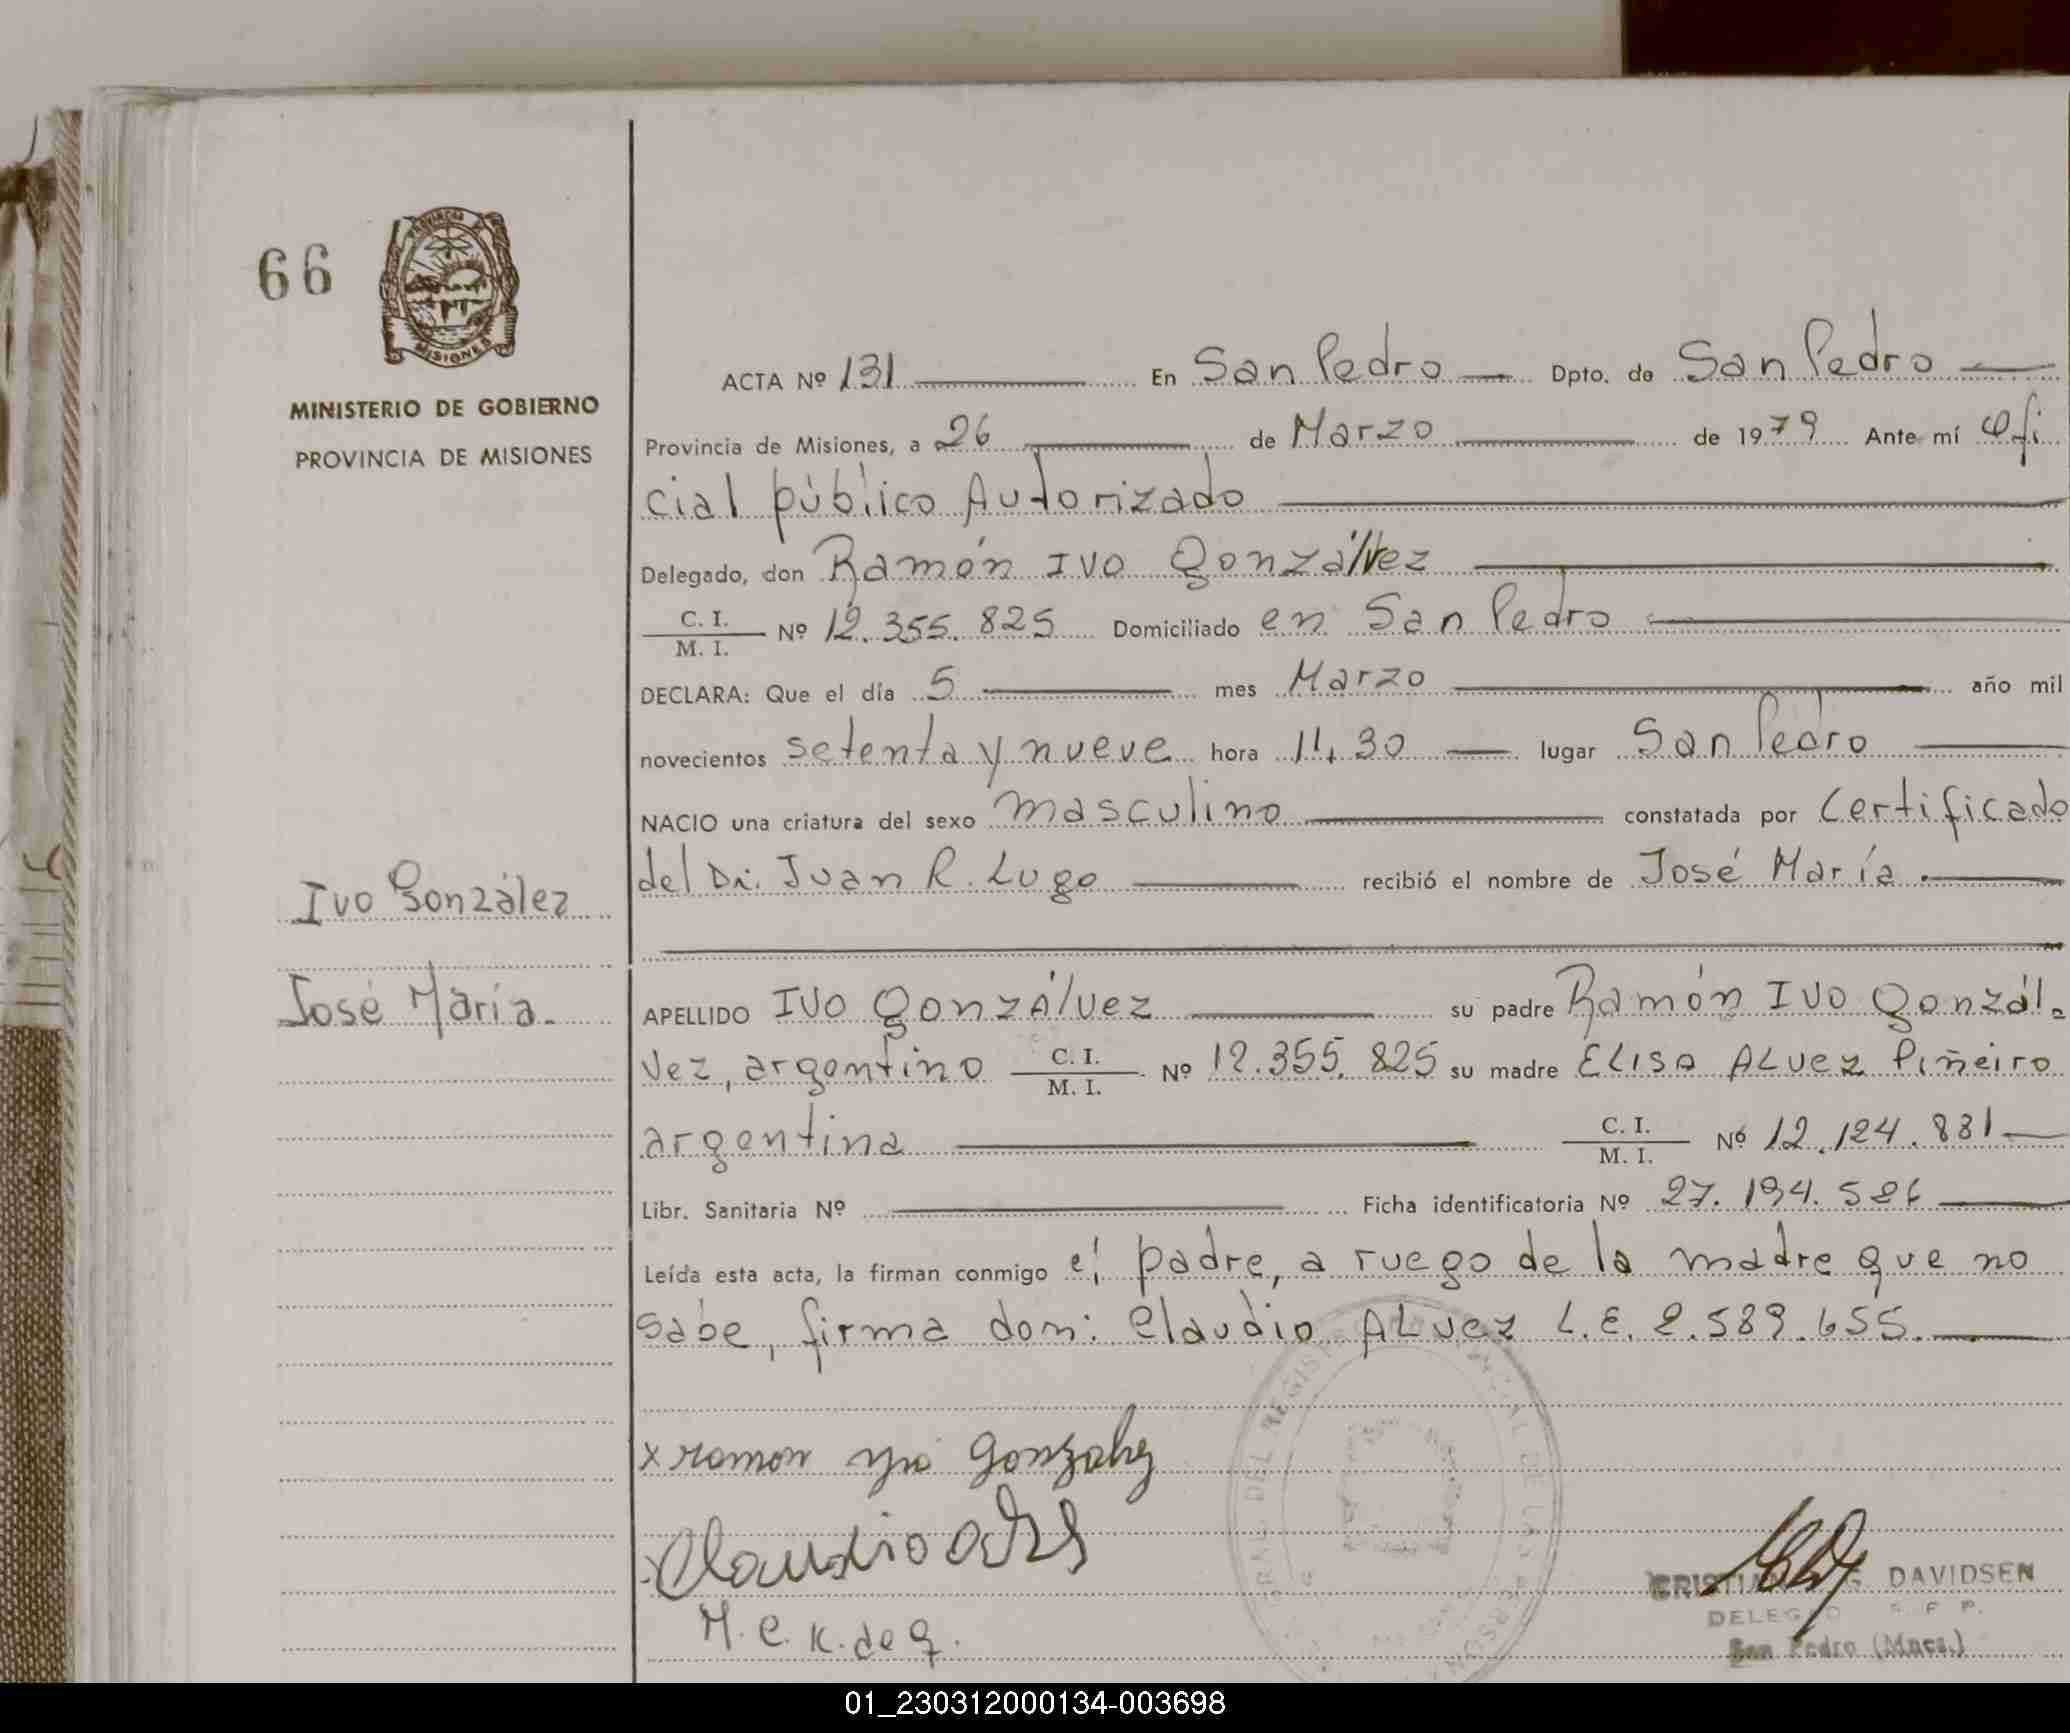 66
PROVINCIA
MISIONES
MINISTERIO DE GOBIERNO
PROVINCIA DE MISIONES
ACTA Nº 131 En San Pedro Dpto. de San Pedro
Provincia de Misiones, a 26 de Marzo de 1979 Ante mí Ofi
cial público Autorizado
Delegado, don Ramón Ivo Gonzálvez
C. I.
M. I. Nº 12.355.825 Domiciliado en San Pedro
DECLARA: Que el día 5 mes Marzo año mil
novecientos setenta y nueve hora 11,30 lugar San Pedro
NACIO una criatura del sexo masculino constatada por Certificado
del Dr. Juan R. Lugo recibió el nombre de José María
Ivo González
José María.
APELLIDO IVO GonzÁlvez su padre Ramón Ivo Gonzál-
vez, argentino C. I. M. I. Nº 12.355.825 su madre ELISA ALVEZ Piñeiro
argentina C. I. M. I. Nº 12.124.831
Libr. Sanitaria Nº Ficha identificatoria Nº 27.194.526
Leída esta acta, la firman conmigo el padre, a ruego de la madre que no
sabe, firma don: Claudio ALvez L.E. 2.589.655.
x ramon Gonzalvez
Claudio
M.C.K. de G.
DAVIDSEN
San Pedro (Mnes.)
01_230312000134-003698